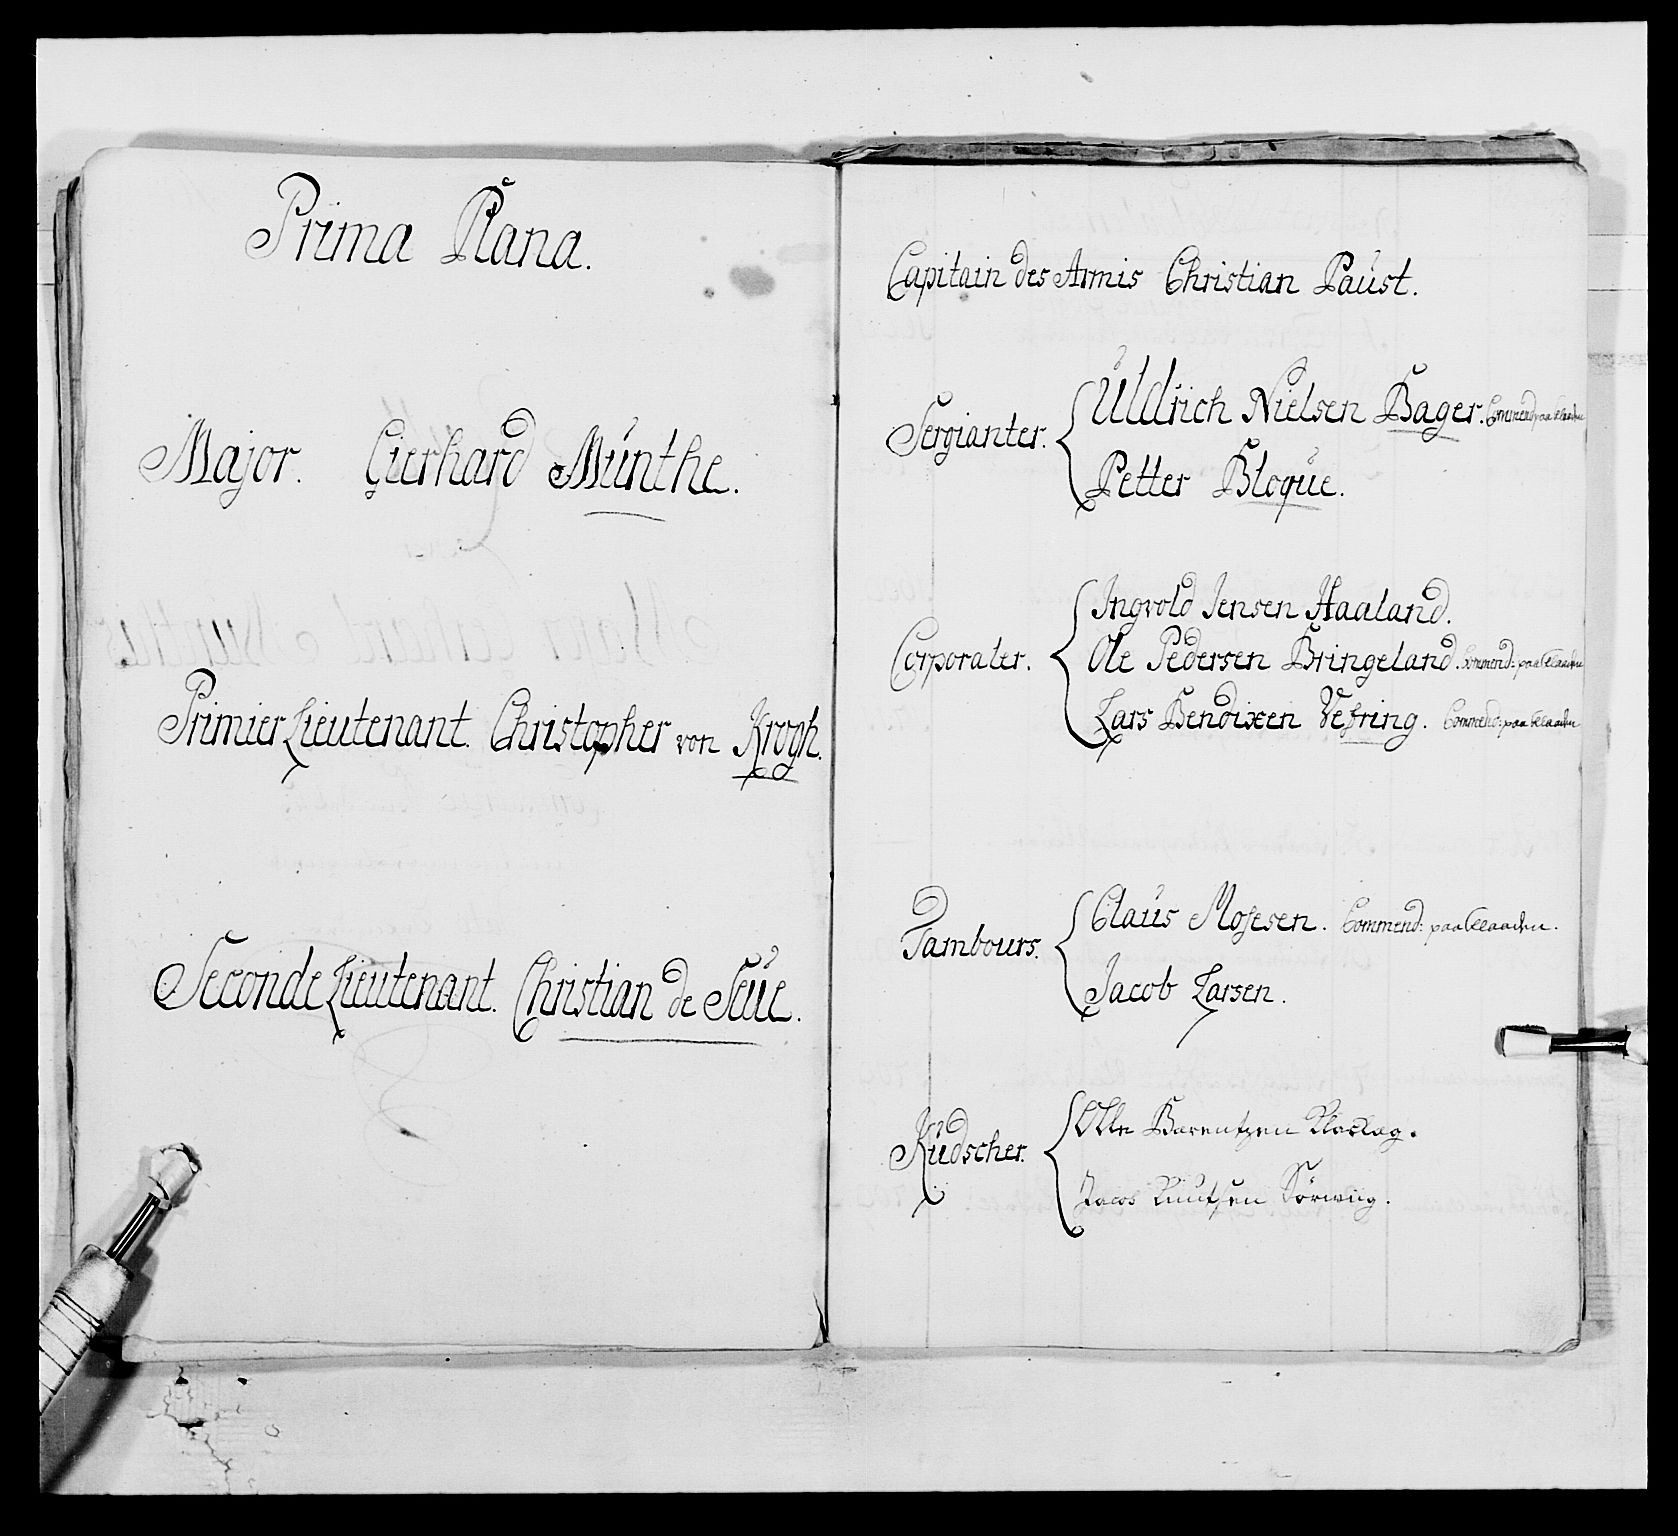 Prima Plana.
Major. Gierhard Münthe.
Primier Lieutenant. Christopher von Krogh.
Seconde Lieutenant. Christian de Seüe.
Capitain des Armis Christian Paüst.
Sergianter. Uldrich Nielsen Bager. Commend: paa Flaaden
Petter Bloqüe.
Corporaler. Ingvold Jensen Haaland.
Ole Pedersen Bringeland. Commend: paa Flaaden
Lars Bendixen Vefring. Commend: paa Flaaden
Tambours. Claüs Mosesen. Commend: paa Flaaden.
Jacob Larsen.
Küdscher. Olle Barentzen
Jacob Knutsen